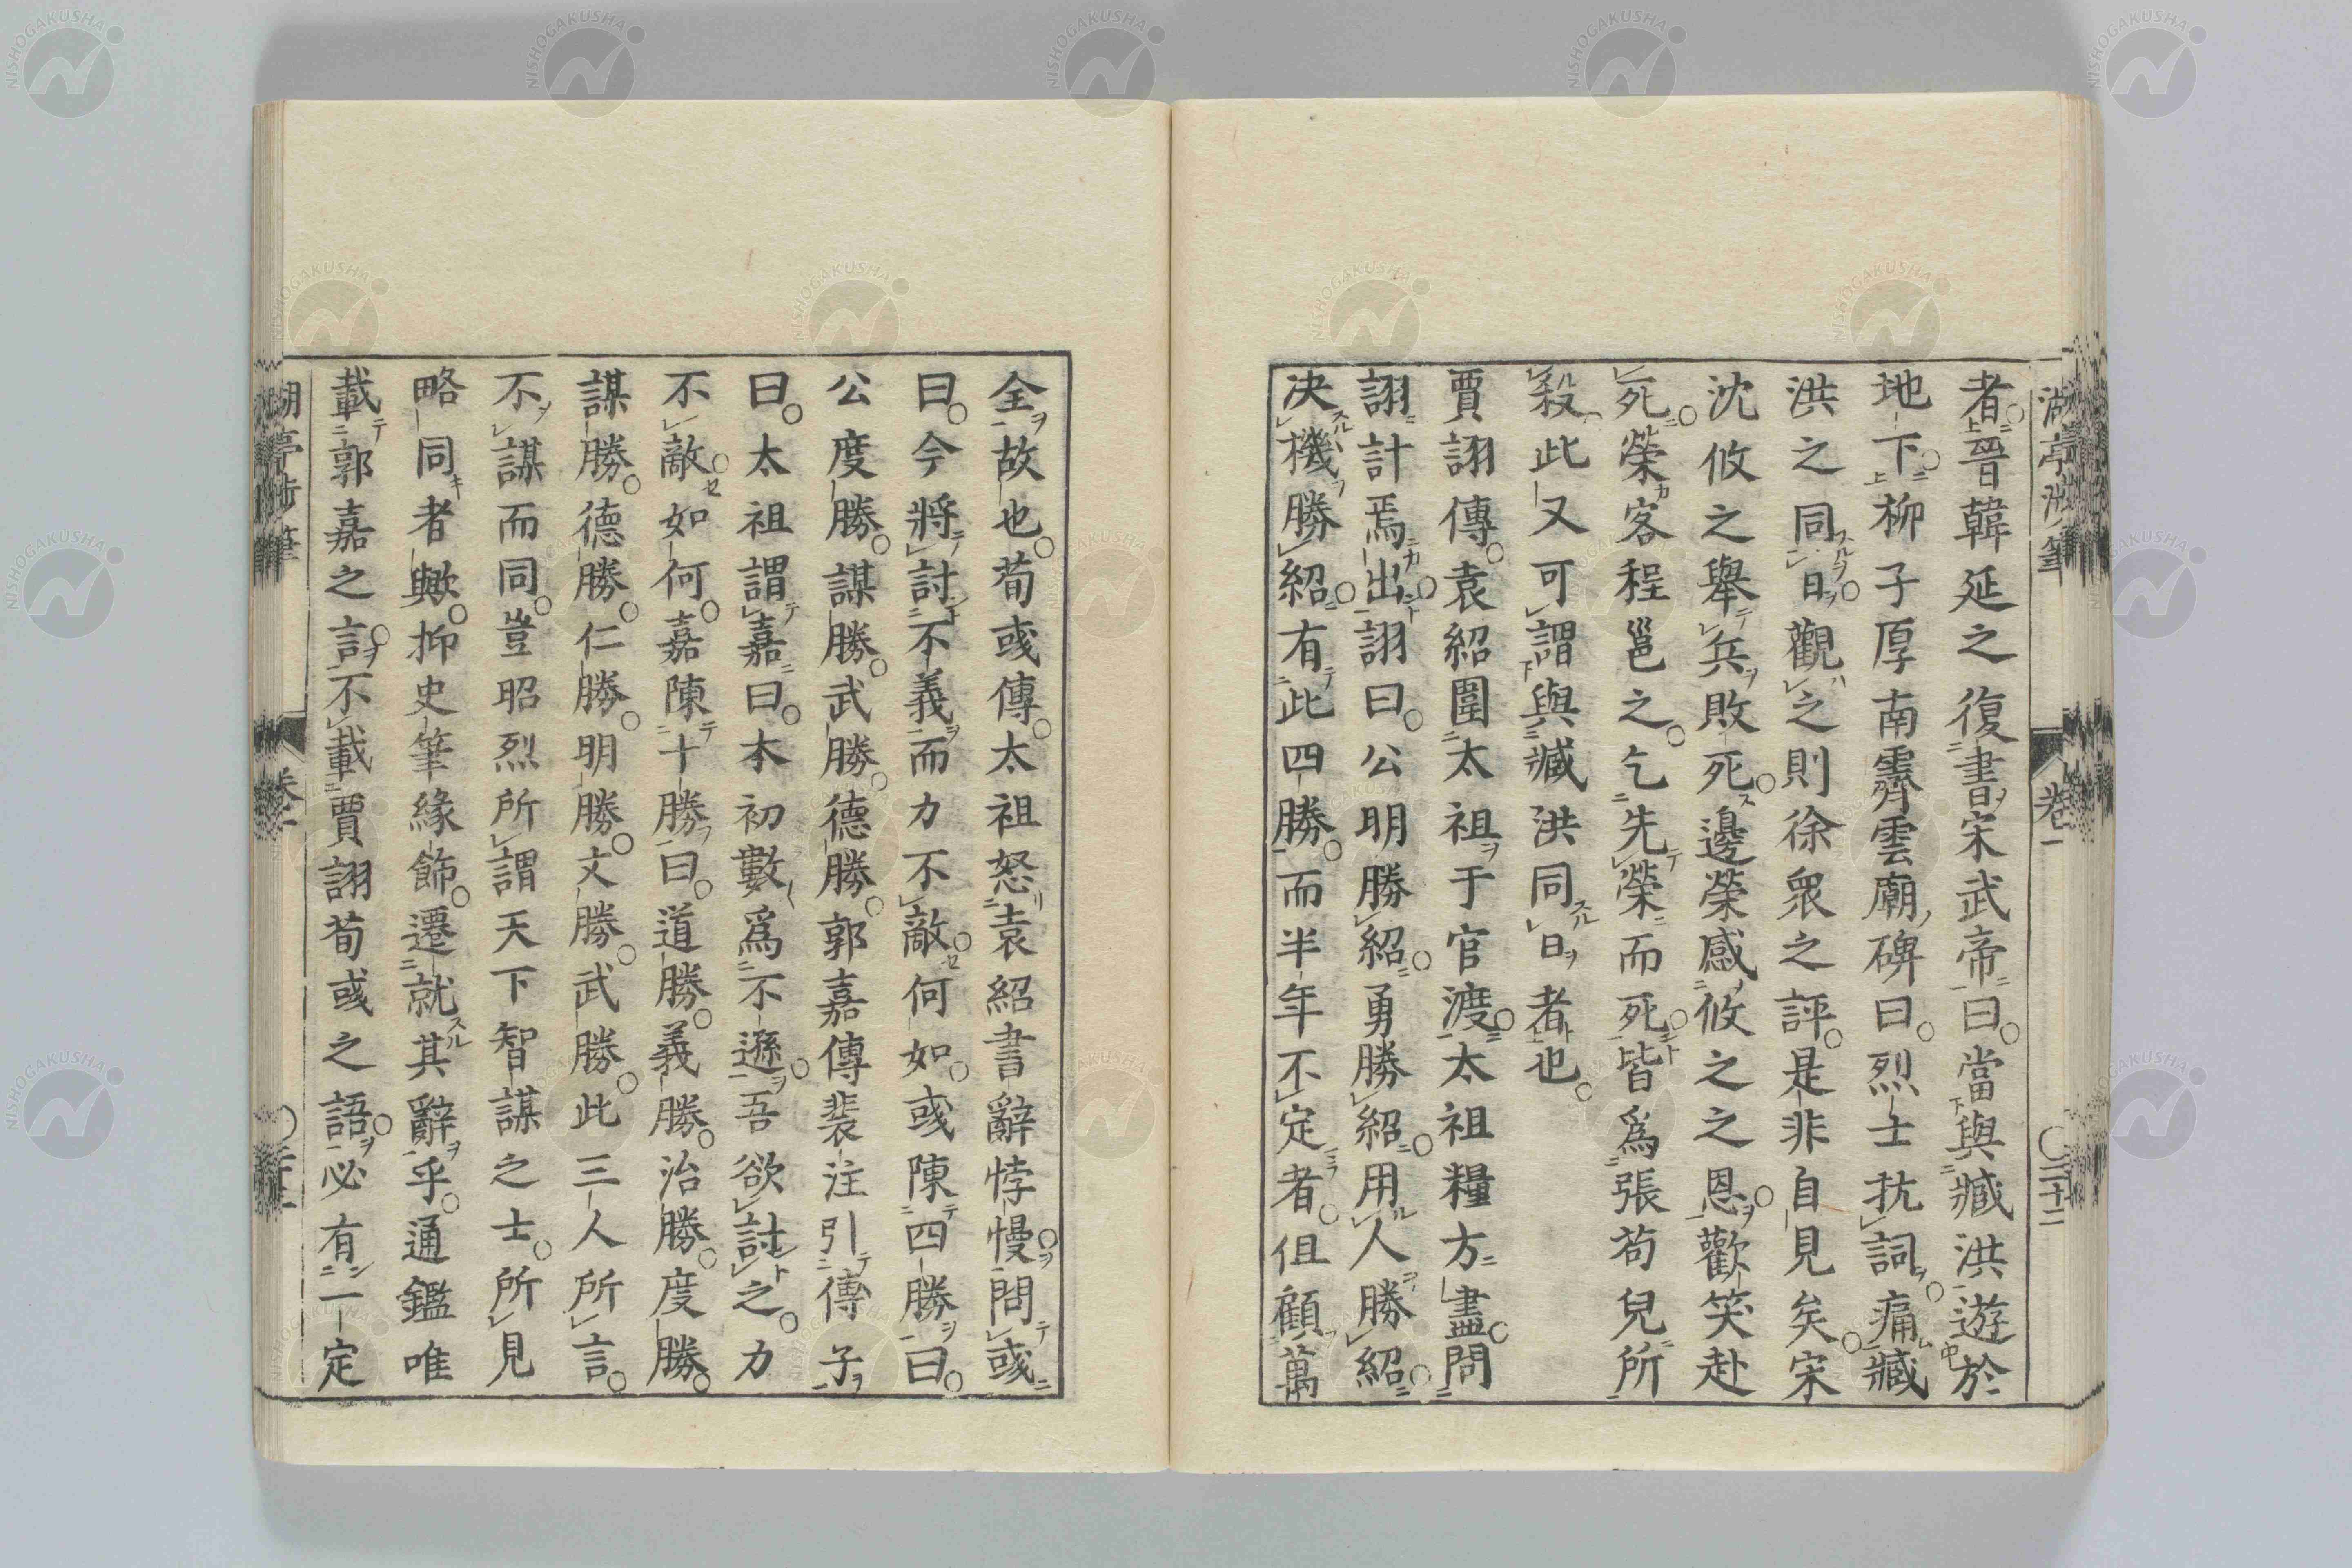 湖亭渉筆 卷一 〇二十二
者晉韓延之復書宋武帝曰當與臧洪遊於
地下柳子厚南霽雲廟碑曰烈士抗詞痛臧
洪之同日觀之則徐衆之評是非自見矣宋
沈攸之舉兵敗死邊榮感攸之之恩歡笑赴
死榮客程邕之乞先榮而死皆爲張苟兒所
殺此又可謂與臧洪同日者也
賈詡傳袁紹圍太祖于官渡太祖糧方盡問
詡計焉出詡曰公明勝紹勇勝紹用人勝紹
决機勝紹有此四勝而半年不定者但顧萬
全故也荀彧傳太祖怒袁紹書辭悖慢問彧
曰今將討不義而力不敵何如彧陳四勝曰
公度勝謀勝武勝德勝郭嘉傳裴注引傅子
曰太祖謂嘉曰本初數爲不遜吾欲討之力
不敵如何嘉陳十勝曰道勝義勝治勝度勝
謀勝德勝仁勝明勝文勝武勝此三人所言
不謀而同豈昭烈所謂天下智謀之士所見
略同者歟抑史筆緣飾遷就其辭乎通鑑唯
載郭嘉之言不載賈詡荀彧之語必有一定
湖亭渉筆 卷一